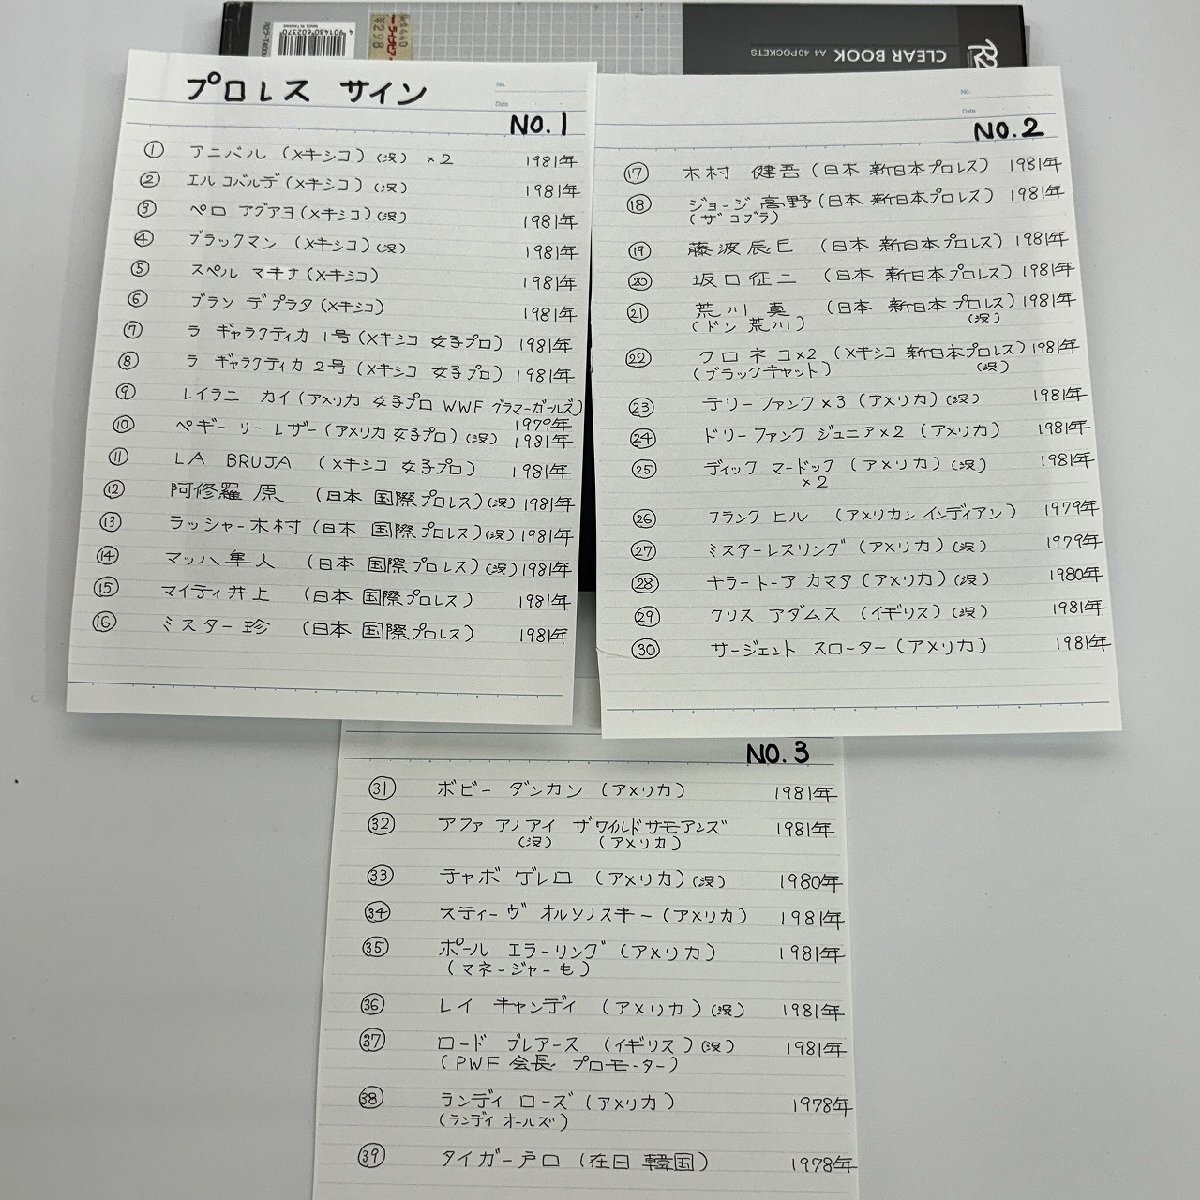 CLEAR BOOK A4 40 POCKETS
4 901480 602370
MADE IN TAIWAN
¥298
プロレス サイン
No.
Date
NO.1
① アニバル (メキシコ) (没) ×2 1981年
② エル コバルデ (メキシコ) (没) 1981年
③ ペロ アグアヨ (メキシコ) (没) 1981年
④ ブラックマン (メキシコ) (没) 1981年
⑤ スペル マキナ (メキシコ) 1981年
⑥ ブラソ デ プラタ (メキシコ) 1981年
⑦ ラ ギャラクティカ 1号 (メキシコ 女子プロ) 1981年
⑧ ラ ギャラクティカ 2号 (メキシコ 女子プロ) 1981年
⑨ レイラニ カイ (アメリカ 女子プロ WWF グラマーガールズ) 1979年
⑩ ペギー リー レザー (アメリカ 女子プロ) (没) 1981年
⑪ LA BRUJA (メキシコ 女子プロ) 1981年
⑫ 阿修羅 原 (日本 国際プロレス) (没) 1981年
⑬ ラッシャー木村 (日本 国際プロレス) (没) 1981年
⑭ マッハ 隼人 (日本 国際プロレス) (没) 1981年
⑮ マイティ井上 (日本 国際プロレス) 1981年
⑯ ミスター珍 (日本 国際プロレス) 1981年
No.
Date
NO.2
⑰ 木村 健吾 (日本 新日本プロレス) 1981年
⑱ ジョージ 高野 (日本 新日本プロレス) 1981年
(ザ コブラ)
⑲ 藤波辰巳 (日本 新日本プロレス) 1981年
⑳ 坂口征二 (日本 新日本プロレス) 1981年
㉑ 荒川 真 (日本 新日本プロレス) 1981年
(ドン 荒川) (没)
㉒ クロネコ×2 (メキシコ 新日本プロレス) 1981年
(ブラックキャット) (没)
㉓ テリーファンク×3 (アメリカ) (没) 1981年
㉔ ドリーファンク ジュニア×2 (アメリカ) 1981年
㉕ ディック マードック (アメリカ) (没) 1981年
×2
㉖ フランク ヒル (アメリカン インディアン) 1979年
㉗ ミスターレスリング (アメリカ) (没) 1979年
㉘ キラートーア カマタ (アメリカ) (没) 1980年
㉙ クリス アダムス (イギリス) (没) 1981年
㉚ サージェント スローター (アメリカ) 1981年
NO.3
㉛ ボビー ダンカン (アメリカ) 1981年
㉜ アファ アノアイ ザワイルドサモアンズ 1981年
(没) (アメリカ)
㉝ チャボ ゲレロ (アメリカ) (没) 1980年
㉞ スティーヴ オルソノスキー (アメリカ) 1981年
㉟ ポール エラーリング (アメリカ) 1981年
(マネージャーも)
㊱ レイ キャンディ (アメリカ) (没) 1981年
㊲ ロード ブレアース (イギリス) (没) 1981年
(PWF 会長 プロモーター)
㊳ ランディ ローズ (アメリカ) 1978年
(ランディ オールズ)
㊴ タイガー戸口 (在日 韓国) 1978年